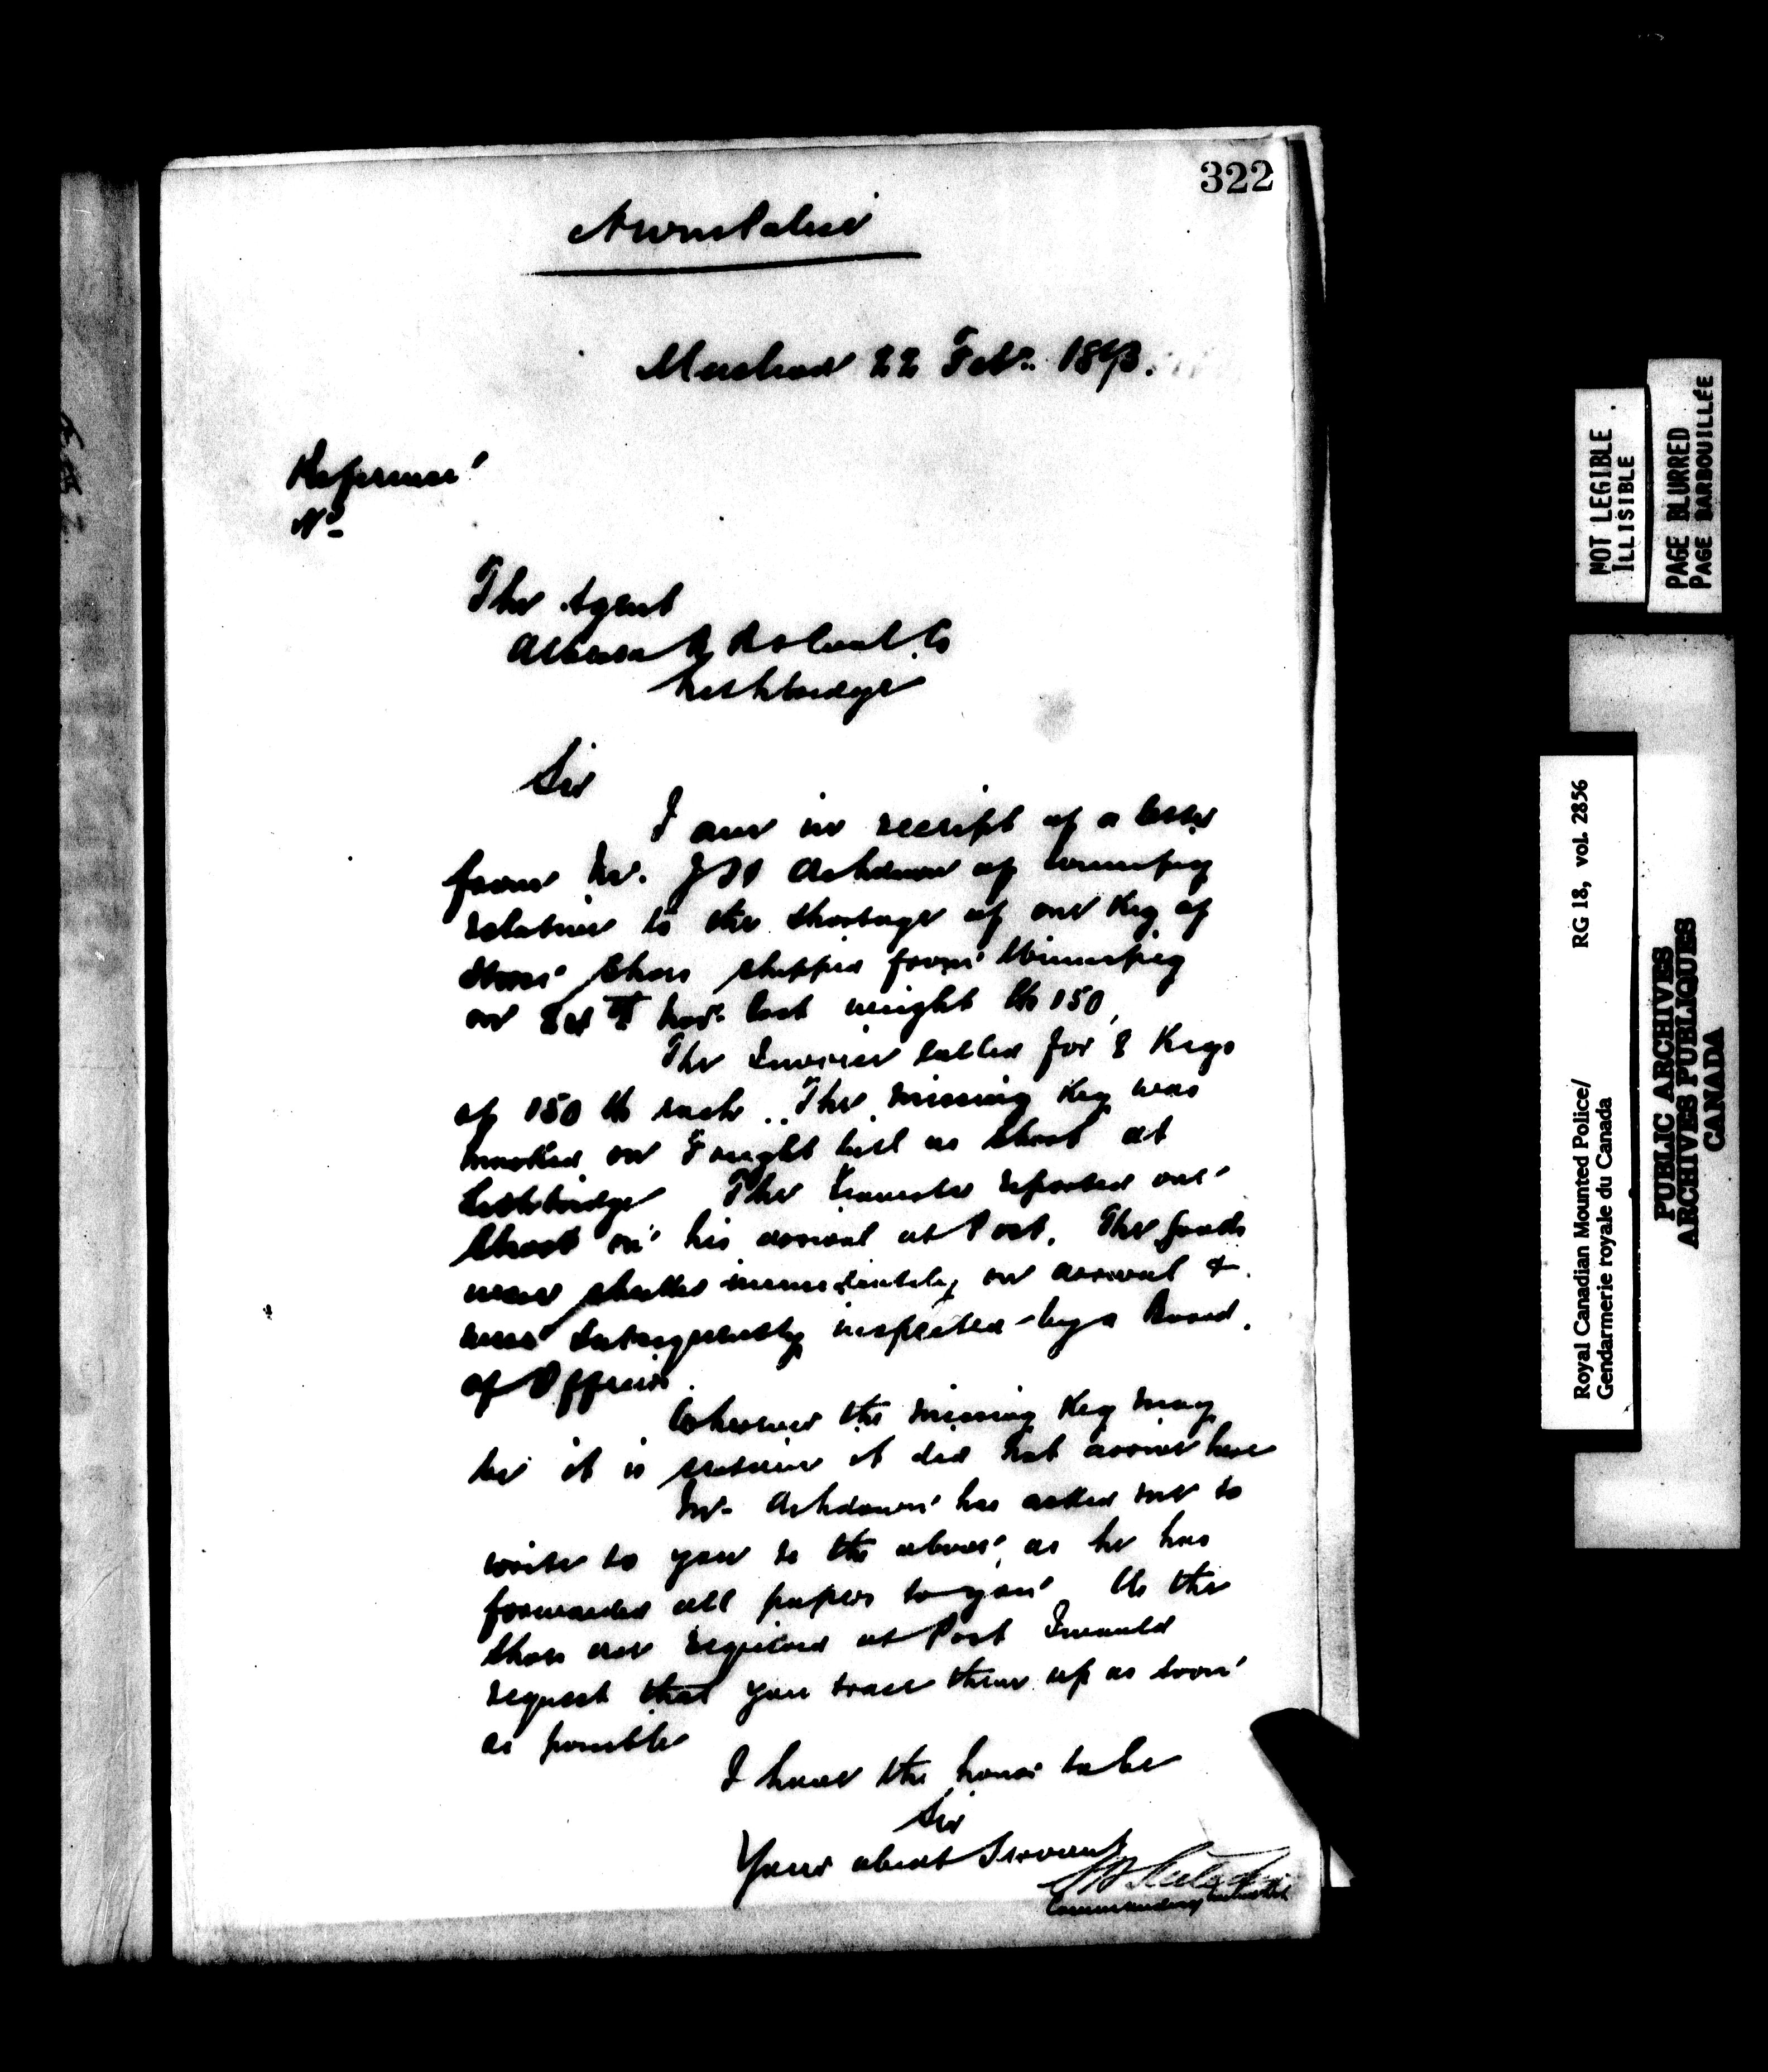 322
Macleod 22 Feb. 1893.
Reference
No
The Agent
Alberta Ry & Coal Co
Lethbridge
Sir
I am in receipt of a letter
from Mr. J H Ashdown of Winnipeg
relative to the shortage of one Keg of
Horse Shoes shipped from Winnipeg
on Nov. last weight lb 150,
The Invoice called for 8 Kegs
of 150 lb each. The missing Keg was
marked on Freight bill as Short at
Lethbridge The Teamster reported one
Short on his arrival at Post. The goods
were immediately on arrival &
were Subsequently inspected by a Board
of Officers.
Wherever the missing Keg may
be it is certain it did not arrive here
Mr. Ashdown has asked me to
write to you re the above as he has
forwarded all papers to you As the
Shoes are required at Post I would
request that you trace them up as soon
as possible
I have the honor to be
Sir
Your obedt Servant
Commanding
NOT LEGIBLE
ILLISIBLE
PAGE BLURRED
PAGE BARBOUILLÉE
Royal Canadian Mounted Police/ RG 18, vol. 2856
Gendarmerie royale du Canada
PUBLIC ARCHIVES
ARCHIVES PUBLIQUES
CANADA